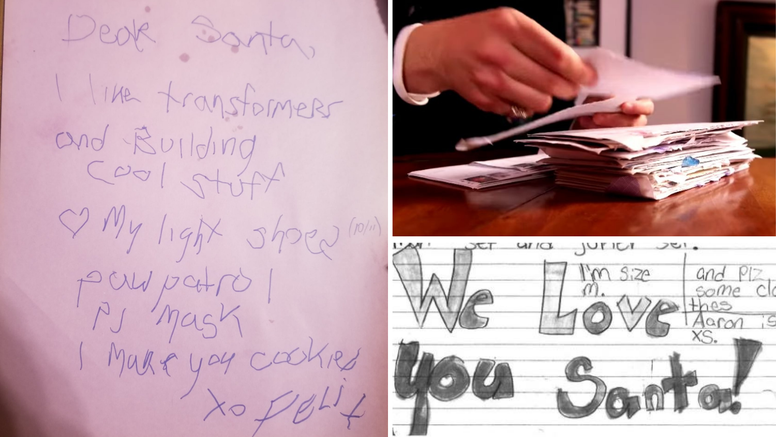 Dear Santa,
I like transformers
and Building
Cool stuff
♡ My light shoes (10/11)
pawpatrol
PJ Mask
I Make you cookies
XO
set and junior set.
We Love
you Santa!
I'm size
m.
and Plz
some clo
thes
Aaron is
XS.